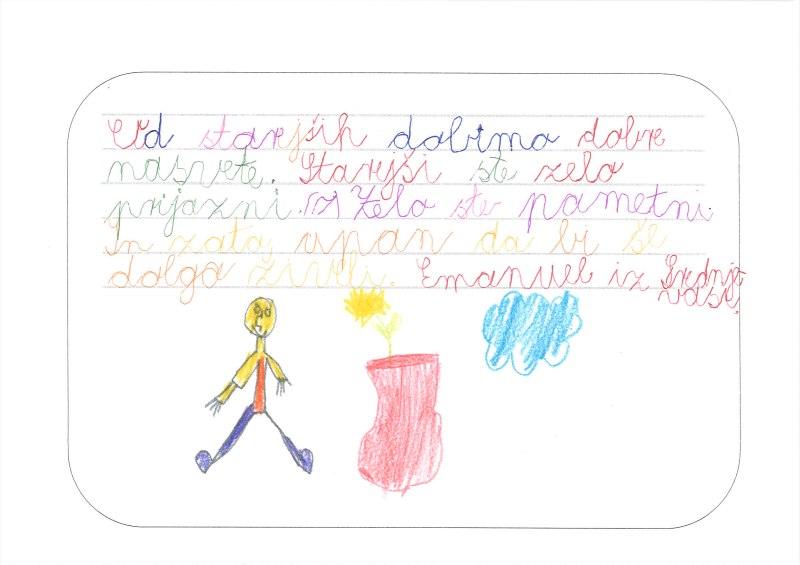 Od starejših dobimo dobre
nasvete. Starejši ste zelo
prijazni. Zelo ste pametni.
In zato upan da bi še
dolgo živeli. Emanuel iz Srednje
vasi.